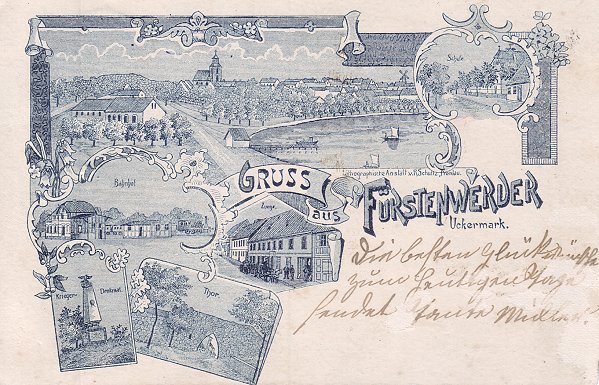 Schule
Lithographische Anstalt v. R. Schultz, Prenzlau.
Bahnhof
GRUSS
aus
FÜRSTENWERDER
Uckermark.
Krieger-
Denkmal.
Thor.
Die besten Glückwünsche
zum heutigen Tage
sendet Tante